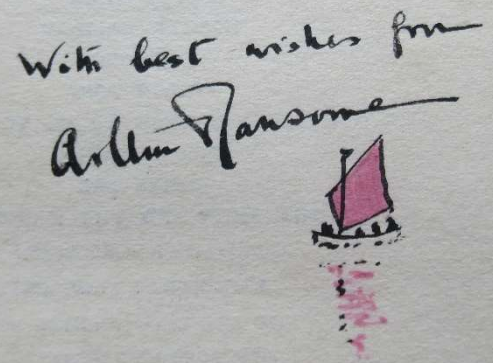 With best wishes from
Arthur Ransome